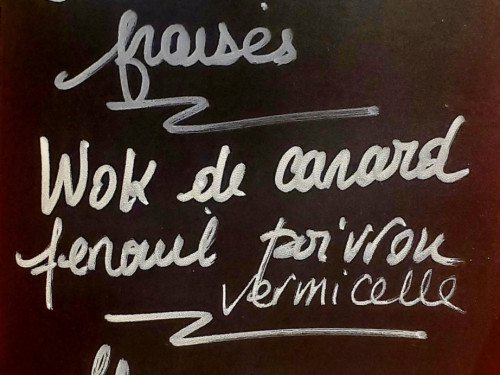 fraises
Wok de canard
fenouil poivron
vermicelle